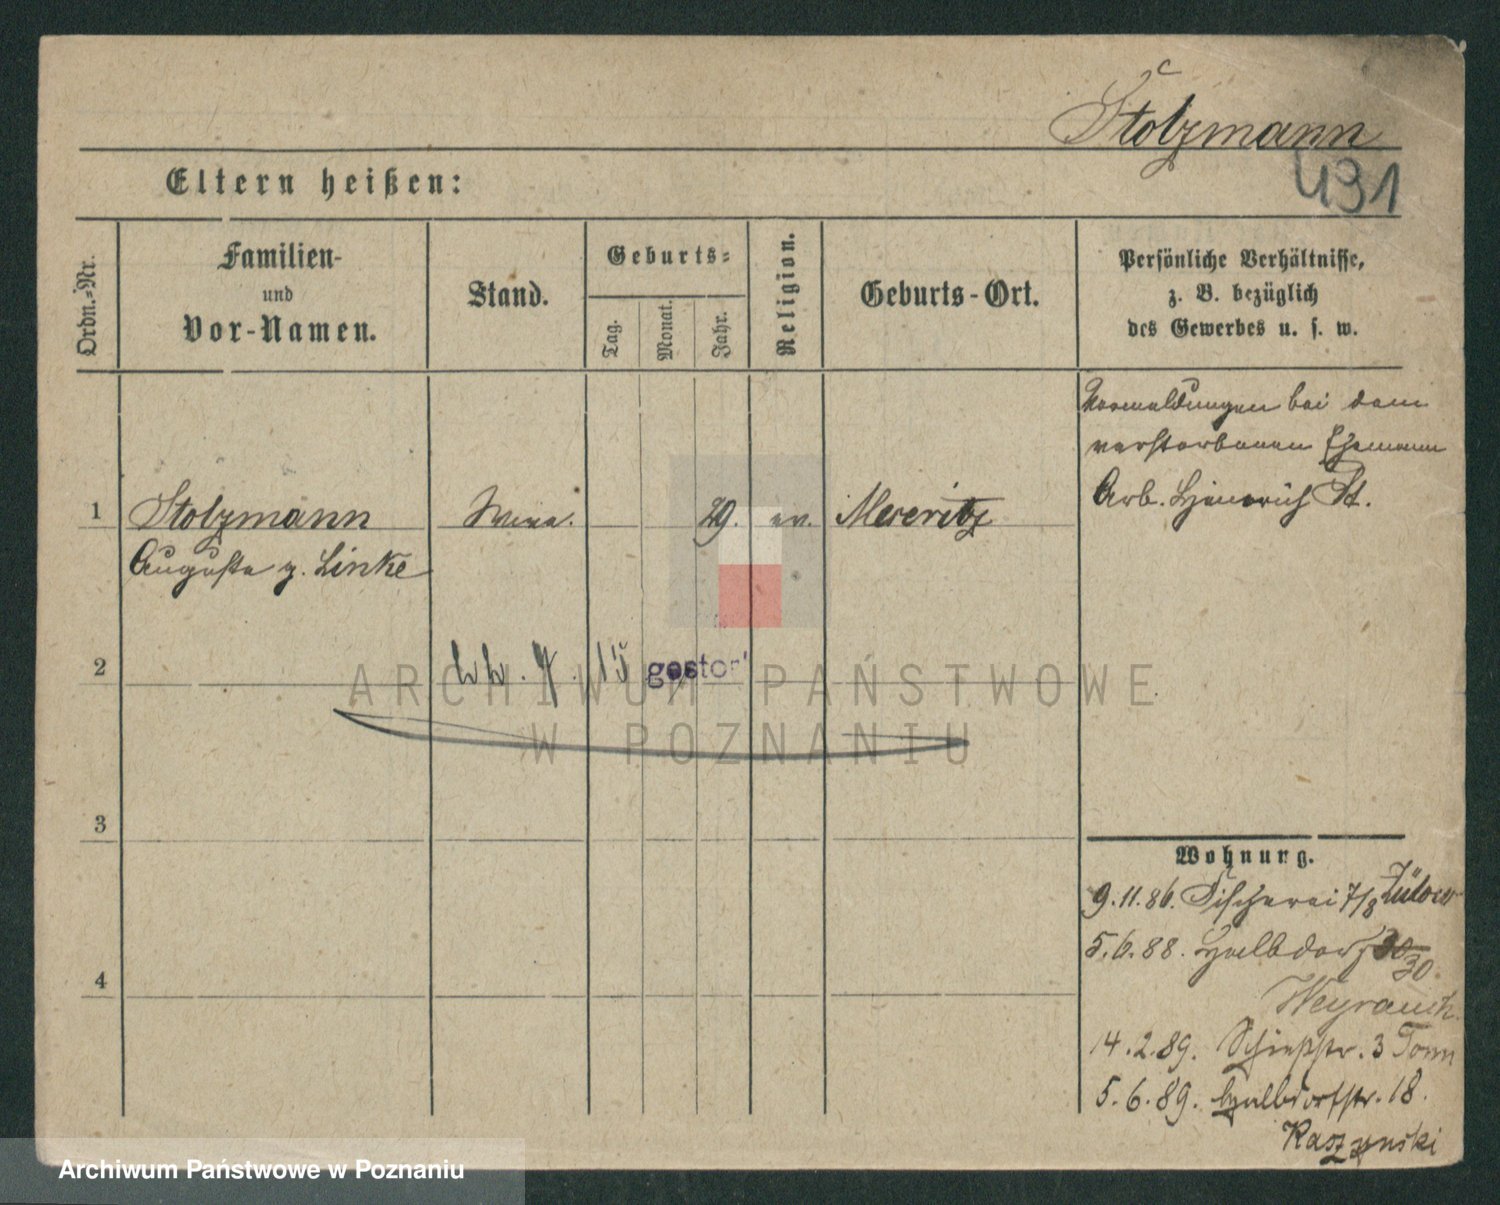 Stolzmann
431
Eltern heißen:
Ordn.-Nr.
Familien-
und
Vor-Namen.
Stand.
Geburts-
Tag.
Monat.
Jahr.
Religion.
Geburts-Ort.
Persönliche Verhältnisse,
z. B. bezüglich
des Gewerbes u. s. w.
bei dem
verstorbenen Ehemann
Arb. Heinrich St.
1 Stolzmann 29. ev. Meseritz
Auguste g. Linke
2 15 gestor
ARCHIWUM PAŃSTWOWE
W POZNANIU
3
Wohnung.
9.11.86. Fischerei 7/8
5.6.88. Halbdorf 30
30.
4
Weyrauch.
14.2.89. Schießstr. 3 Tomm
5.6.89. Halbdorfstr. 18.
Raszynski
Archiwum Państwowe w Poznaniu